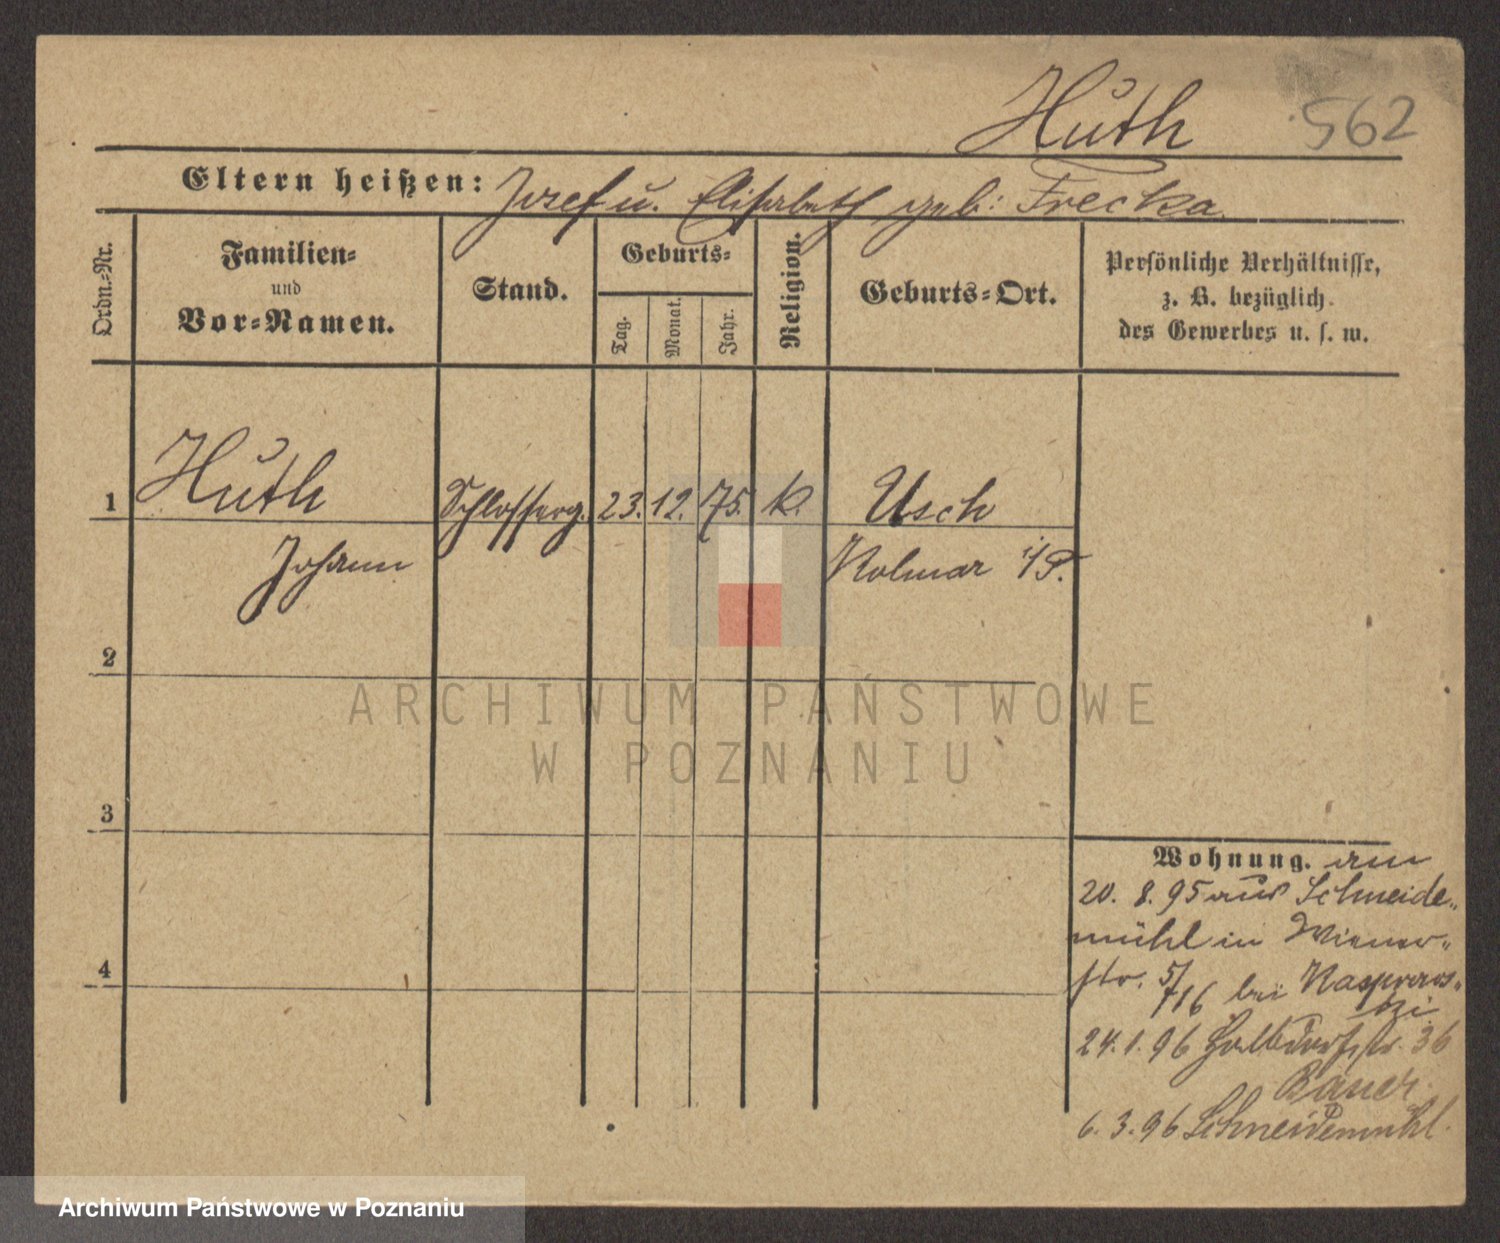 Huth 562
Eltern heißen: Josef u. Elisabeth geb: Frecka
Ordn.-Nr.
Familien-
und
Vor-Namen.
Stand.
Geburts-
Tag.
Monat.
Jahr.
Religion.
Geburts-Ort.
Persönliche Verhältnisse,
z. B. bezüglich
des Gewerbes u. s. w.
1 Huth Schlosserg. 23. 12. 75. k. Usch
Johann Kolmar i/P.
2
3
4
ARCHIWUM PAŃSTWOWE
W POZNANIU
Wohnung. am
20. 8. 95 aus Schneide-
mühl in Wiener-
str. 5/ 716 bei Kasprows-
ki
24. 1. 96 Halbdorfstr. 36
Bauer
6. 3. 96 Schneidemühl.
Archiwum Państwowe w Poznaniu